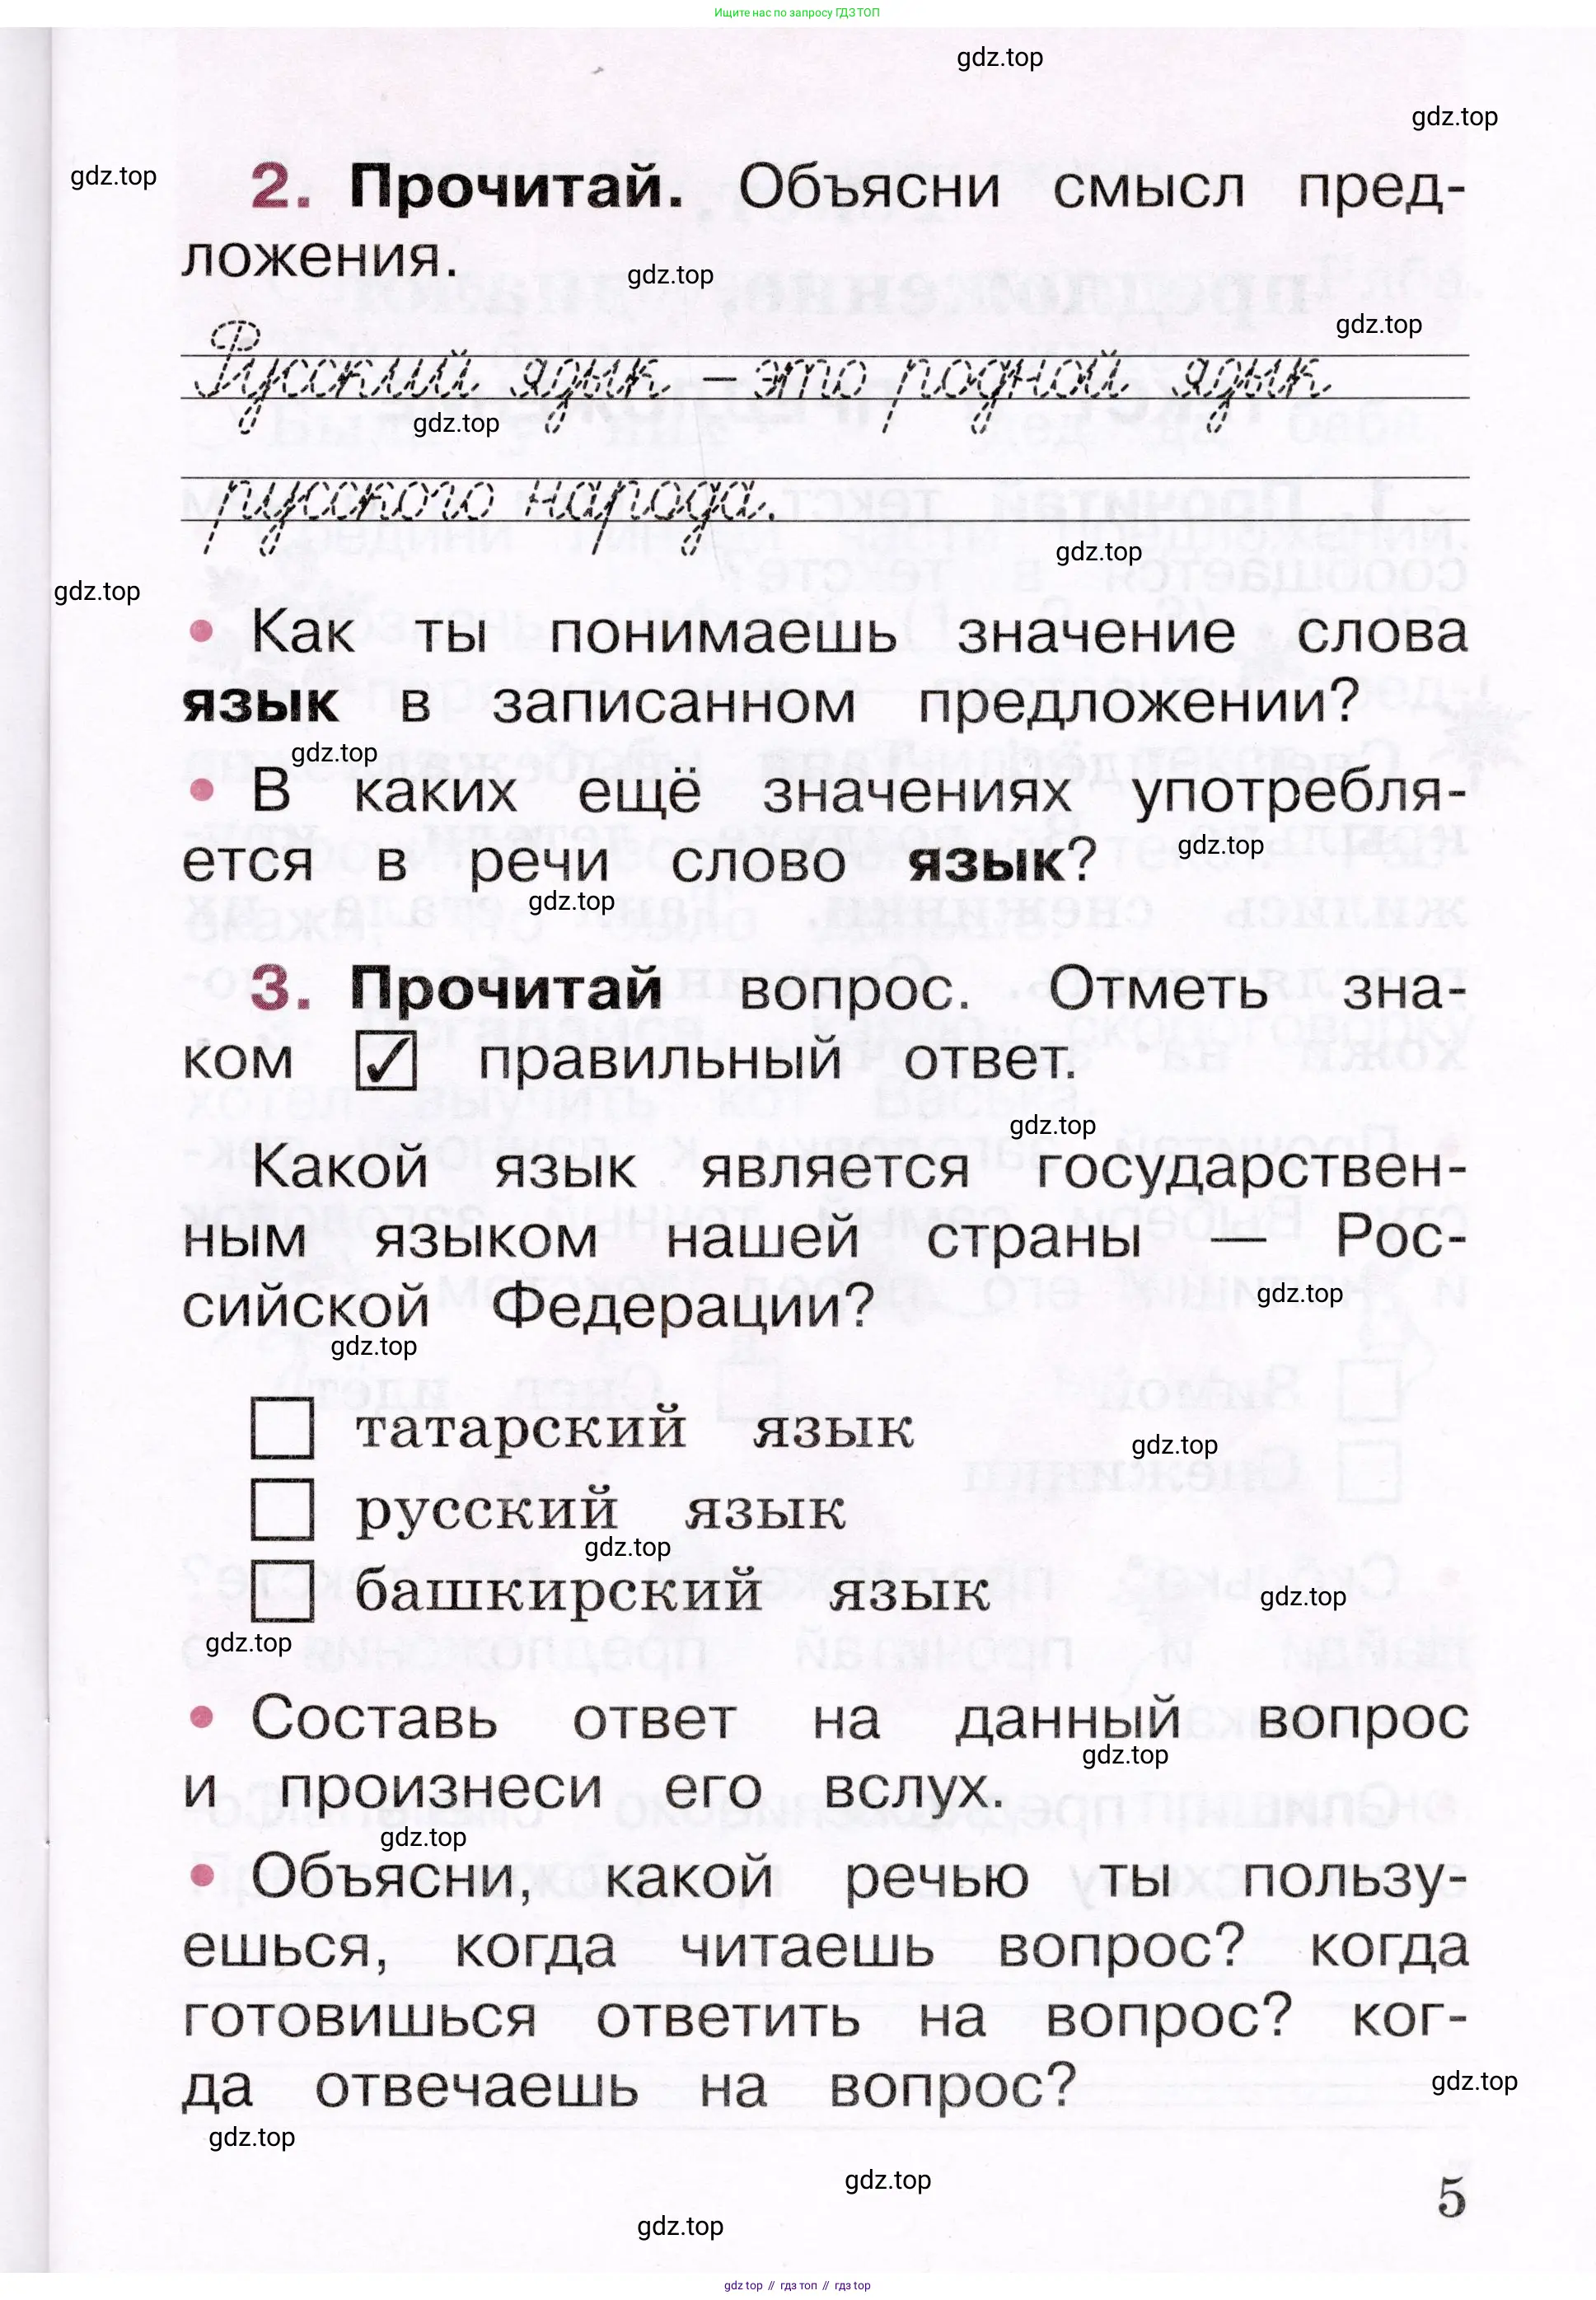 Ищите нас по запросу ГДЗ ТОП
gdz.top
gdz.top
gdz.top
2. Прочитай. Объясни смысл пред-
ложения.
gdz.top
gdz.top
Русский язык – это родной язык
gdz.top
русского народа.
gdz.top
gdz.top
• Как ты понимаешь значение слова
язык в записанном предложении?
gdz.top
• В каких ещё значениях употребля-
gdz.top
ется в речи слово язык?
gdz.top
3. Прочитай вопрос. Отметь зна-
ком ✓ правильный ответ.
gdz.top
Какой язык является государствен-
ным языком нашей страны — Рос-
сийской Федерации?
gdz.top
gdz.top
татарский язык
gdz.top
русский язык
gdz.top
башкирский язык
gdz.top
gdz.top
• Составь ответ на данный вопрос
gdz.top
и произнеси его вслух.
gdz.top
• Объясни, какой речью ты пользу-
ешься, когда читаешь вопрос? когда
готовишься ответить на вопрос? ког-
да отвечаешь на вопрос?
gdz.top
gdz.top
gdz.top
5
gdz.top
gdz top // гдз топ // гдз top